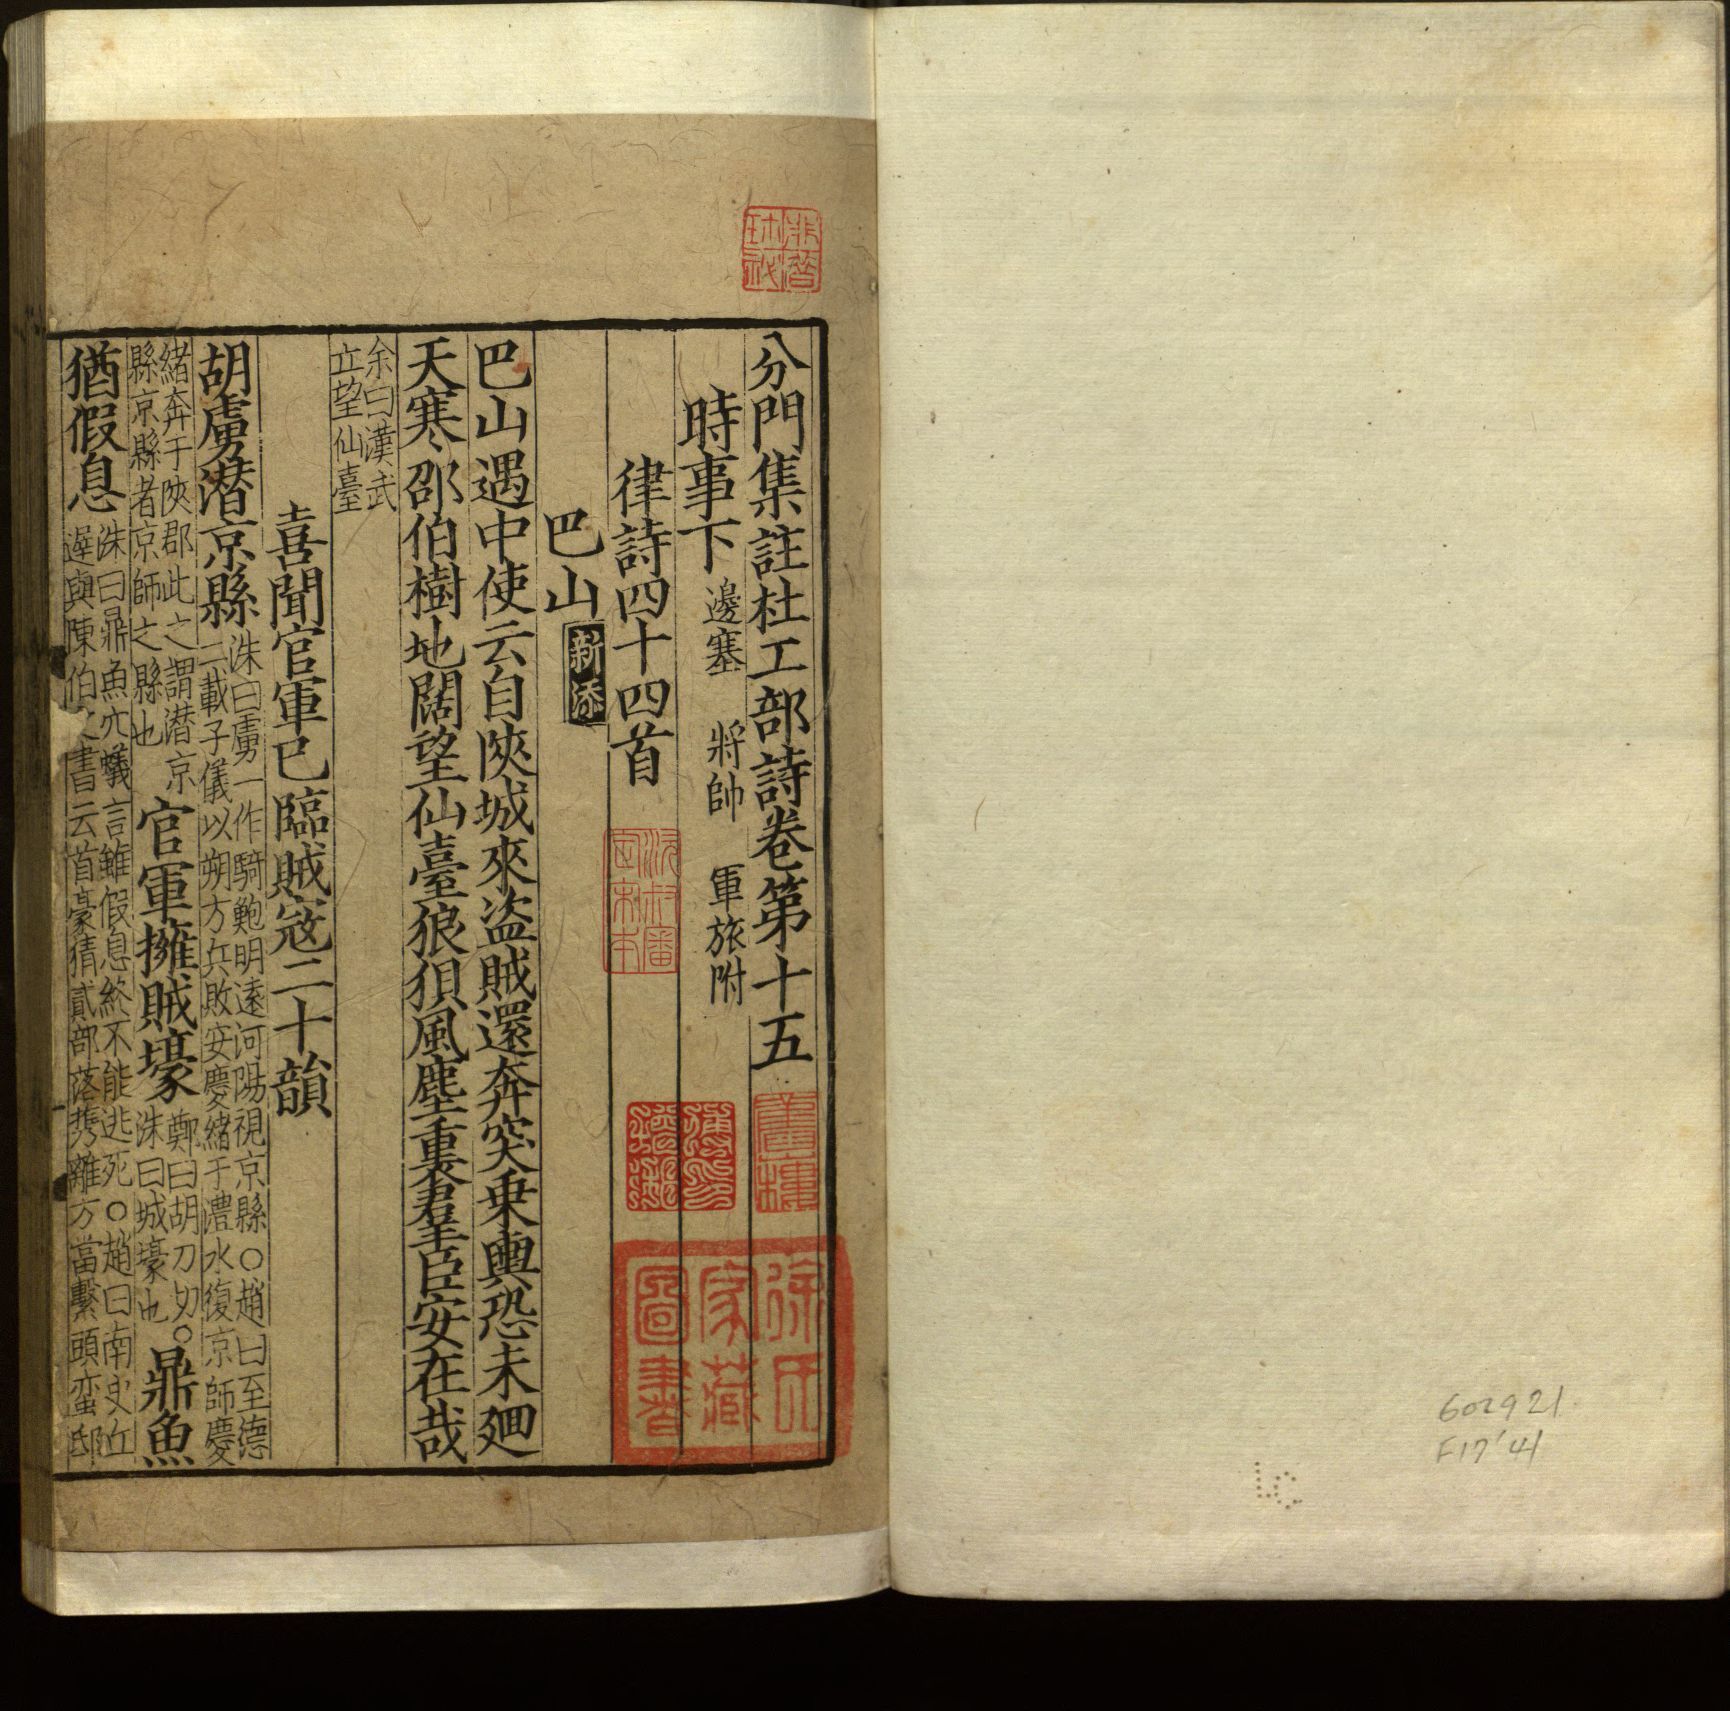 分門集註杜工部詩卷第十五
時事下 邊塞 將帥 軍旅附
律詩四十四首
巴山 新添
巴山遇中使云自陝城來盜賊還奔突乗輿恐未廻
天寒邵伯樹地闊望仙臺狼狽風塵裏羣臣安在哉
余曰漢武
立望仙臺
喜聞官軍已臨賊寇二十韻
胡虜潜京縣 洙曰虜一作騎鮑明遠河陽視京縣○趙曰至德
二載子儀以朔方兵敗安慶緒于灃水復京師慶
緒奔于陝郡此之謂潜京
縣京縣者京師之縣也
官軍擁賊壕 鄭曰胡刀切○
洙曰城壕也
鼎魚
猶假息 洙曰鼎魚穴蟻言雖假息終不能逃死○趙曰南史丘
遲與陳伯之書云首豪猜貳部落携離方當繫頭蠻邸
徐氏
家藏
圖書
602921
F17'41
LC